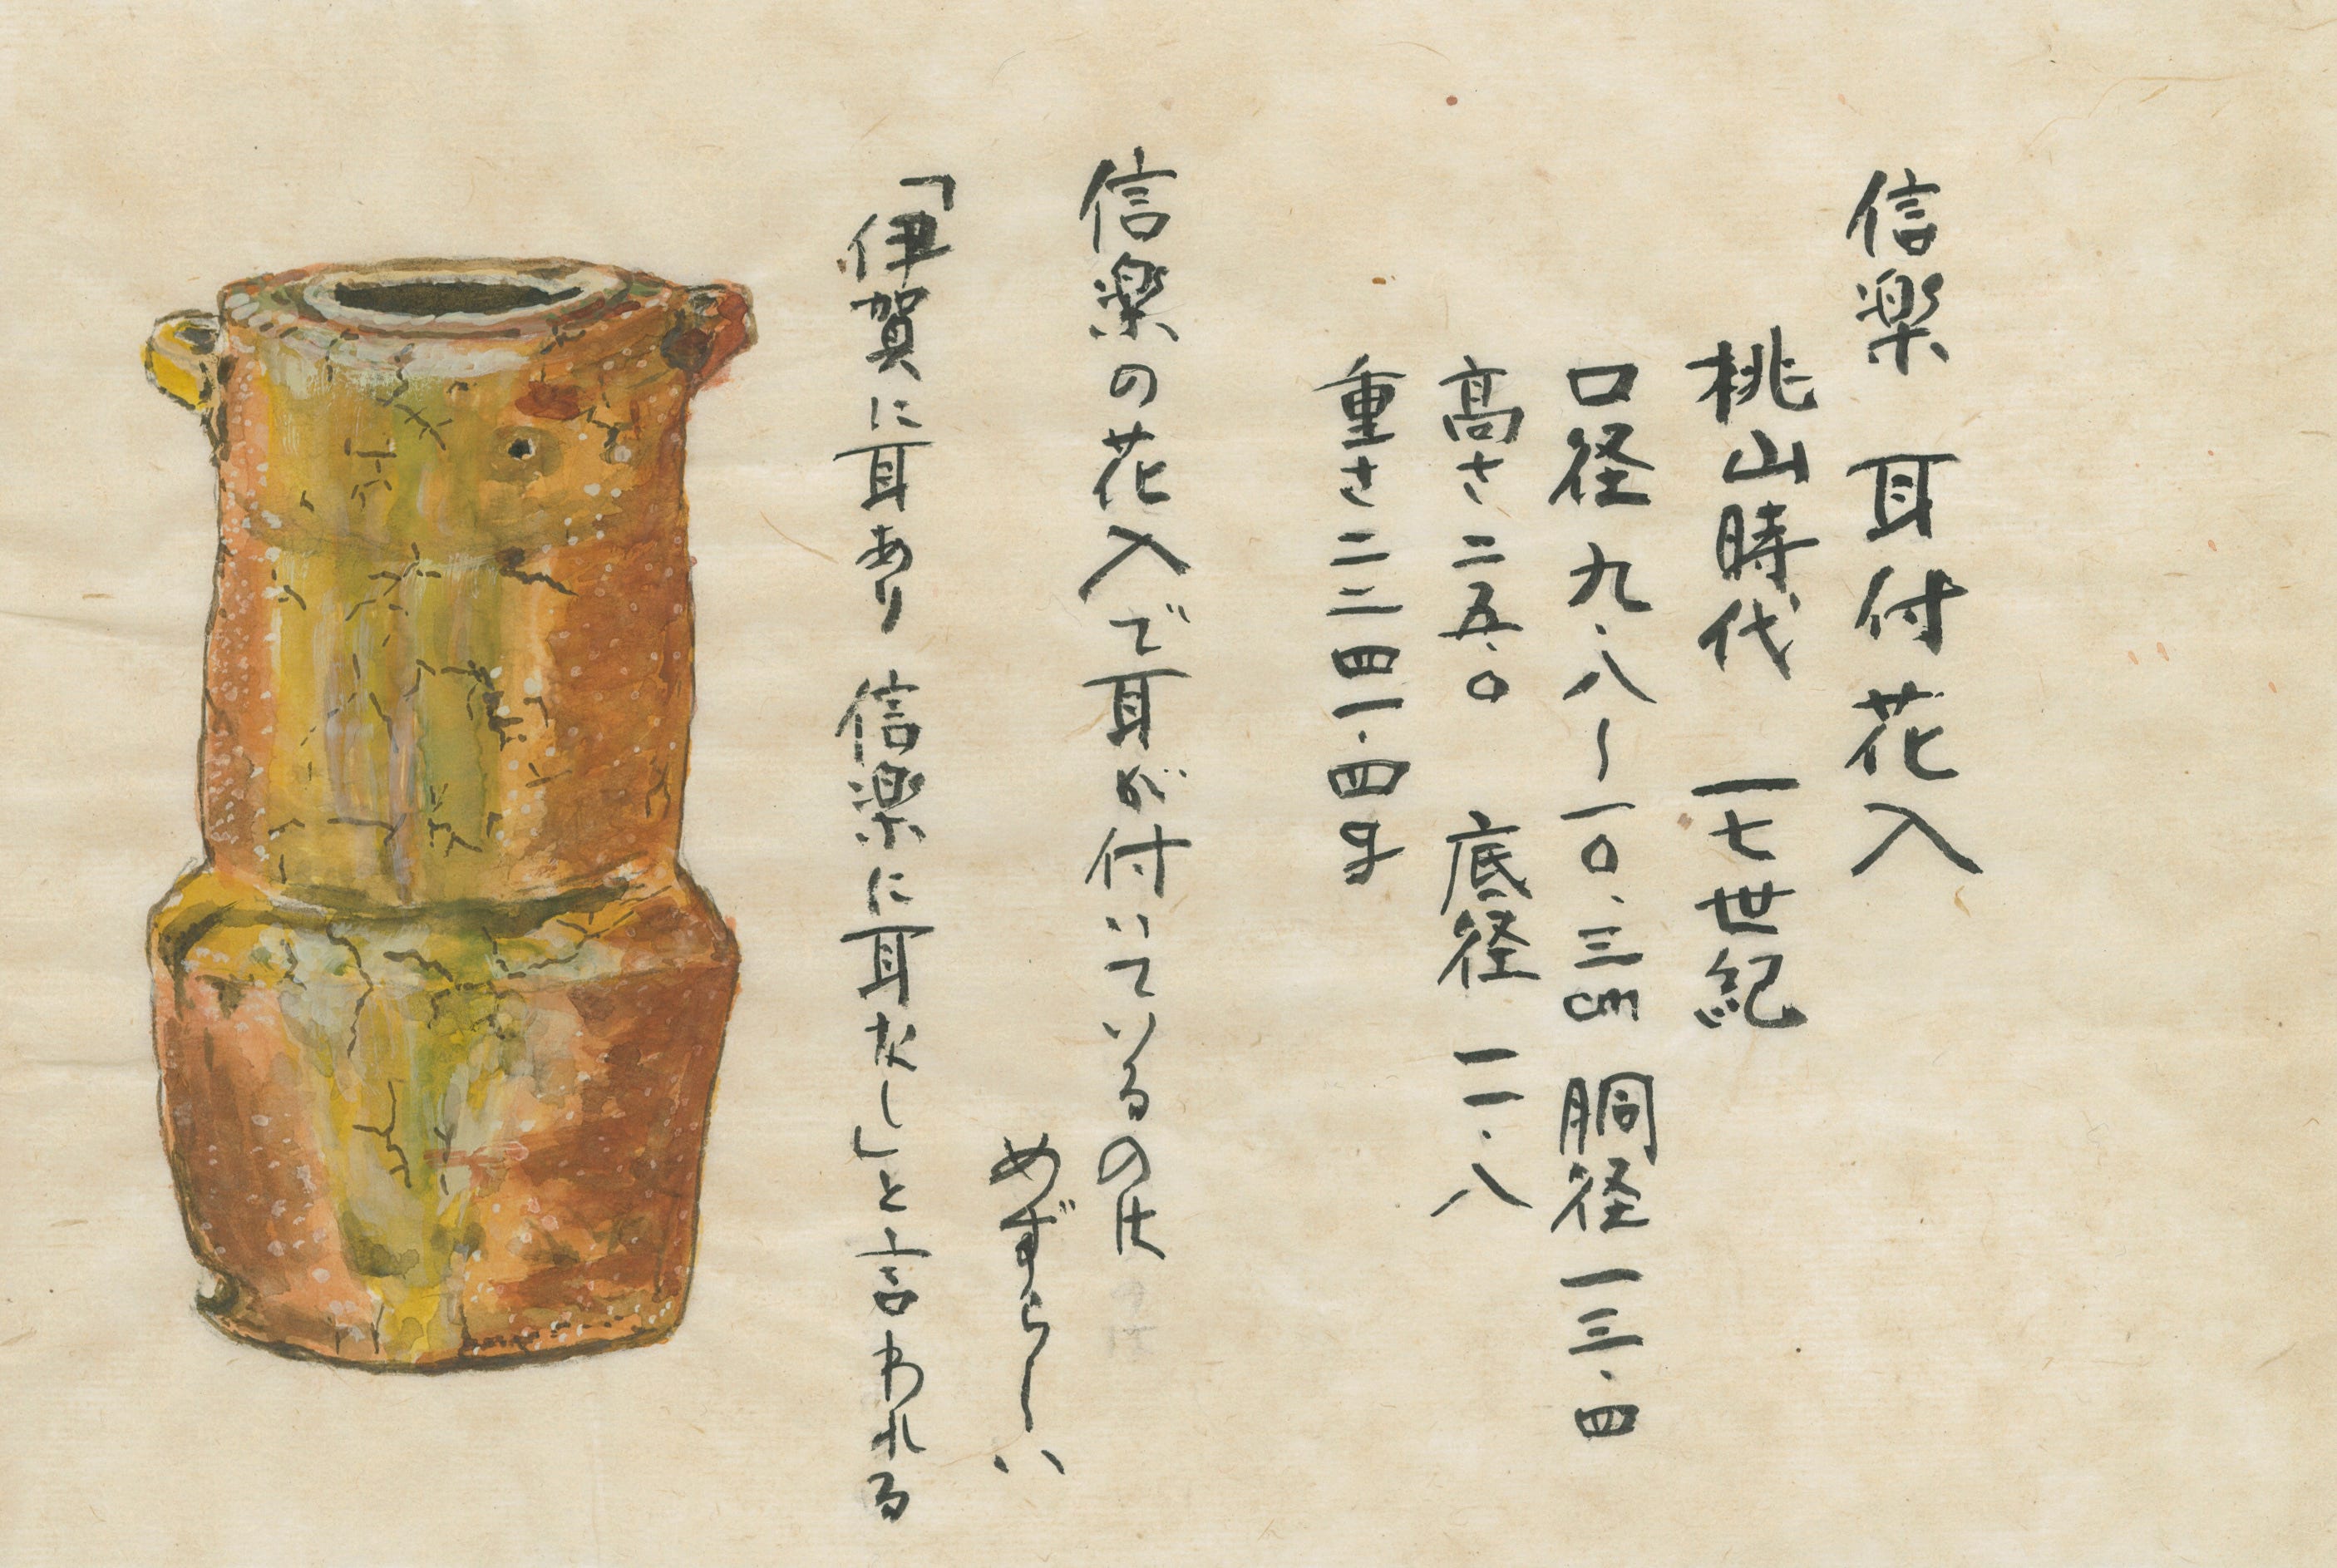 信楽 耳付花入
桃山時代 一七世紀
口径 九.八〜一〇.三cm 胴径 一三.四
高さ 二五.〇 底径 一一.八
重さ 二二四一.四g
信楽の花入で耳が付いているのは
めずらしい
「伊賀に耳あり 信楽に耳なし」と言われる